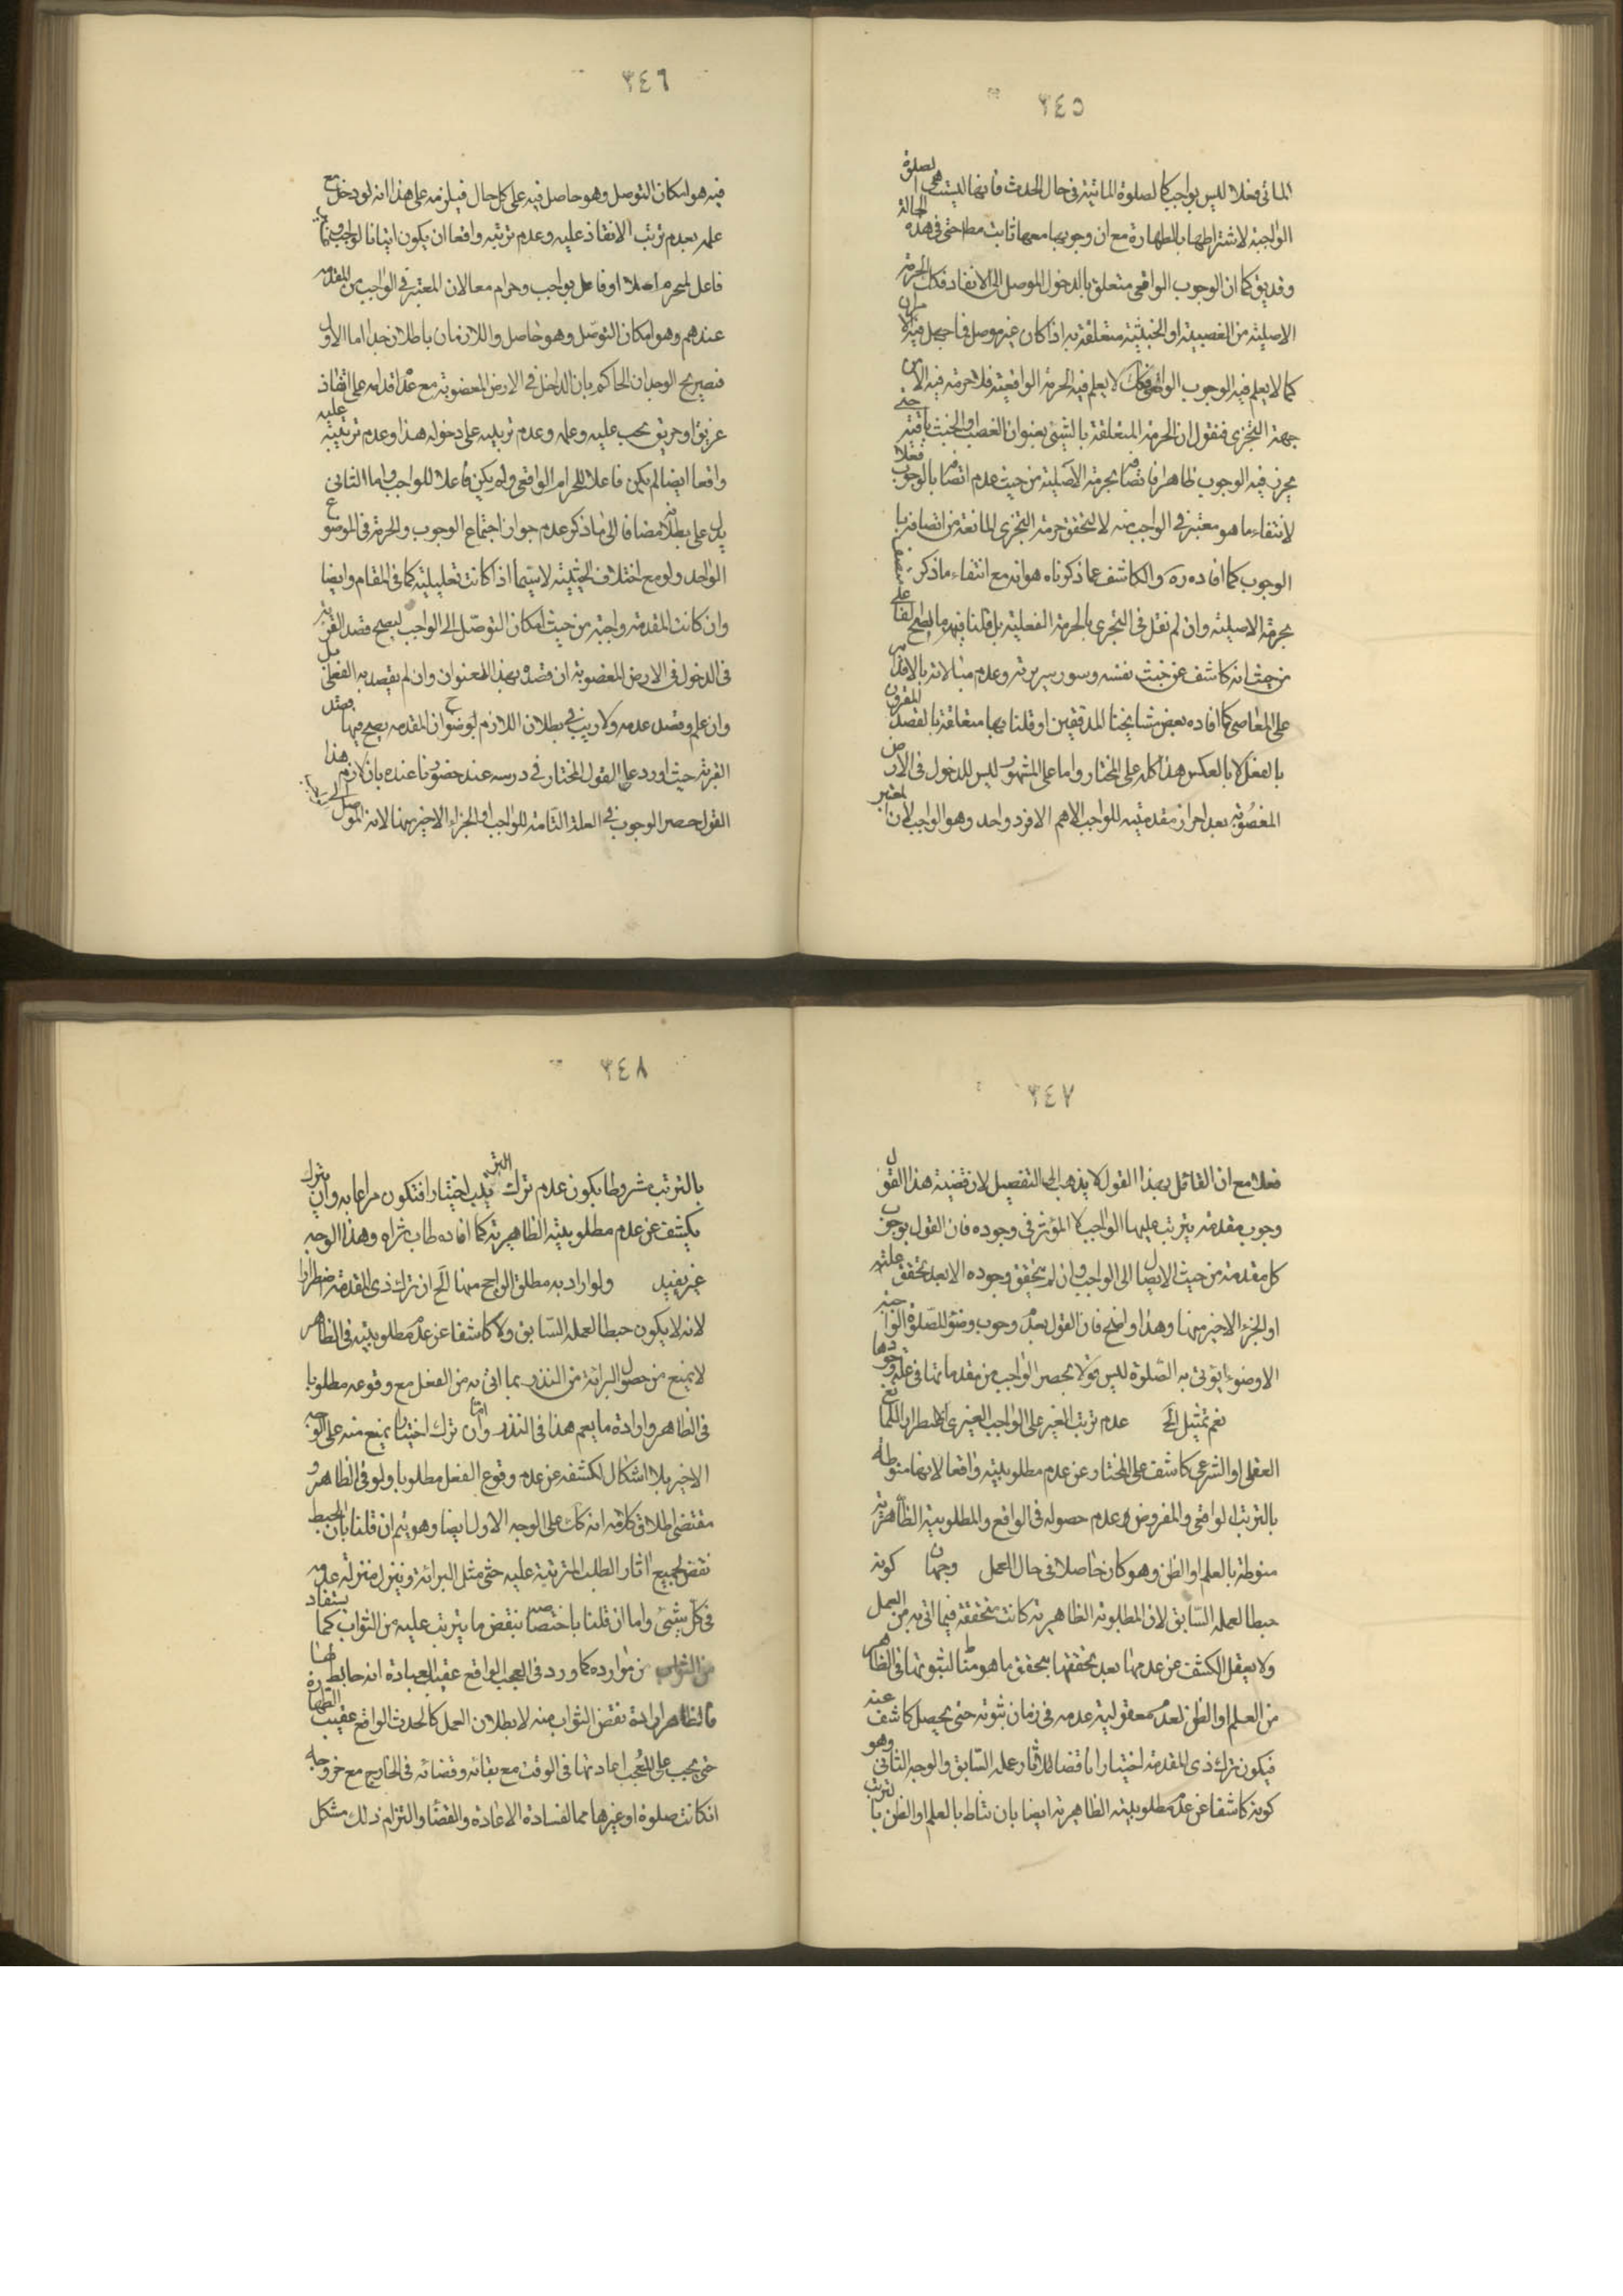 ٣٤٥
المأتى فعلا ليس بواجب كالصلوة المأتية فى حال الحدث فانها ليست هى الصلوة
الواجبة لاشتراطها بالطهارة مع ان وجوبها معها ثابت مطلقا حتى فى هذه الحالة
كما ان الوجوب الواقعى متعلق بالدخول الموصل الى الانقاذ فكك الحرمة
الاصلية من الغصبية او الخبثية متعلقة به اذا كان غير موصل
كما لا يعلم فيه الوجوب الواقعى فكك لا يعلم فيه الحرمة الواقعية فلا حرمة فيه الا من
جهة التجرى فنقول ان الحرمة المتعلقة بالشيئ بعنوان الغصب او الخبث باقية
فيه الوجوب ظاهرا بحرمته الاصلية من حيث عدم اتصافه بالوجوب فعلا
لانتفاء ما هو معتبر فى الواجب منه لا لتحقق حرمة التجرى المانعة من اتصافه با
الوجوب كما افاده ره والكاشف عما ذكرناه هو انه مع انتفاء ما ذكر
بحرمته الاصلية وان لم نقل فى التجرى بالحرمة الفعلية بل قلنا فيه
من حيث انه كاشف عن خبث نفسه وسوء سريرته وعدم مبالاته بالاقدام
على المعاصى كما افاده بعض مشايخنا المدققين او قلنا بها متعلقة بالقصد المقرون
بالفعل لا بالعكس هذا كله على المختار واما على المشهور ليس للدخول فى الارض
المغصوبة بعد احراز مقدميته للواجب الاهم الا فرد واحد وهو الواجب لان المعتبر
٣٤٦
فيه هو امكان التوصل وهو حاصل فيه على كل حال فيلزمه على هذا انه لو دخل مع
علمه بعدم ترتب الانقاذ عليه وعدم ترتبه واقعا ان يكون اتيانا لواجب
فاعل لمحرم اصلا او فاعل لواجب وحرام معا لان المعتبر فى الواجب من المقدمة
عندهم وهو امكان التوصل وهو حاصل واللازمان باطلان جدا اما الاول
فصريح الوجدان الحاكم بان الداخل فى الارض المغصوبة مع عدم اقدامه على انقاذ
غريق او حريق يجب عليه وعلمه وعدم ترتبه على دخوله هذا وعدم ترتبه عليه
واقعا ايضا لم يكن فاعلا للحرام الواقعى ولم يكن فاعلا للواجب واما الثانى
يدل على بطلانه مضافا الى ما ذكر عدم جواز اجتماع الوجوب والحرمة فى الموضوع
الواحد ولو مع اختلاف الحيثية لاسيما اذا كانت تعليلية كما فى المقام وايضا
وان كانت المقدمة واجبة من حيث امكان التوصل الى الواجب ليصح قصد القربة
فى الدخول فى الارض المغصوبة ان قصده بهذا العنوان وان لم يقصد به الفعلى بل
وان علم وقصد عدمه ولا ريب فى بطلان اللازم لوضوح ان المقدمة يصح فيها قصد
القربة حيث اورد على القول المختار فى درسه عند حضورنا عنده بان لازم هذا
القول حصر الوجوب فى العلة التامة للواجب او الجزء الاخير منها لانه الموصل
٣٤٧
فعلا مع ان القائل بهذا القول لا يذهب الى التفصيل لان قضية هذا القول
وجوب مقدمة يترتب عليها الواجب لا المؤثر فى وجوده فان القول بوجوب
كل مقدمة من حيث الايصال الى الواجب وان لم يتحقق وجوده الا بعد تحقق علته
او الجزء الاخير منها وهذا واضح فان القول بعدم وجوب وضوء للصلوة الواجبة
الا وضوء يؤتى به الصلوة ليس قولا بحصر الواجب من مقدماتها فى علة وجودها
نعم تمثيل الخ عدم ترتب الغير على الواجب الغيرى اضطرارا للمانع
العقلى او الشرعى كاشف على المختار عن عدم مطلوبيته واقعا لانها منوطة
بالترتب الواقعى والمفروض عدم حصوله فى الواقع والمطلوبية الظاهرية
منوطة بالعلم او الظن وهو كان حاصلا فى حال العمل وجهان كونه
حبطا لعمله السابق لان المطلوبية الظاهرية كانت متحققة فيما اتى به من العمل
ولا يعقل الكشف عن عدمها بعد تحققها بتحقق ما هو مناط لثبوتها فى الظاهر
من العلم او الظن لعدم معقولية عدمه فى زمان ثبوته حتى يحصل كاشف عنه
فيكون ترك ذى المقدمة اختيارا ناقضا لآثار عمله السابق والوجه الثانى وهو
كونه كاشفا عن عدم مطلوبيته الظاهرية ايضا بان تناط بالعلم او الظن بالترتب
٣٤٨
بالترتب مشروطا بكون عدم ترك الترتب اختيارا فتكون مراعا به وان ترك
يكشف عن عدم مطلوبيته الظاهرية كما افاده طاب ثراه وهذا الوجه
غير بعيد ولو اراد به مطلق الواجح منها الخ ان ترك ذى المقدمة اضطرارا
لانه لا يكون حبطا لعمله السابق ولا كاشفا عن عدم مطلوبيته فى الظاهر
لا يمنع من حصول البرائة من النذر بما اتى به من الفعل مع وقوعه مطلوبا
فى الظاهر وارادة ما يعم هذا فى النذر واما ان ترك اختيارا يمنع منه على الوجه
الاخير بلا اشكال لكشفه عن عدم وقوع الفعل مطلوبا ولو فى الظاهر و
مقتضى اطلاق كلامه انه كك على الوجه الاول ايضا وهو يتم ان قلنا بان الحبط
نقض لجميع اثار الطلب المترتبة عليه حتى مثل البرائة وينزل منزلة عدمه
فى كل شيئ واما ان قلنا باختصاصه بنقض ما يترتب عليه من الثواب كما يستفاد
من موارده كما ورد فى العجب الواقع عقيب العبادة انه حابط لها
فالظاهر ارادة نقض الثواب منه لا بطلان العمل كالحدث الواقع عقيب الطهارة
حتى يجب على المعجب اعادتها فى الوقت مع بقائه وقضائه فى الخارج مع خروجه
ان كانت صلوة او غيرها مما لفساده الاعادة والقضاء والتزام ذلك مشكل